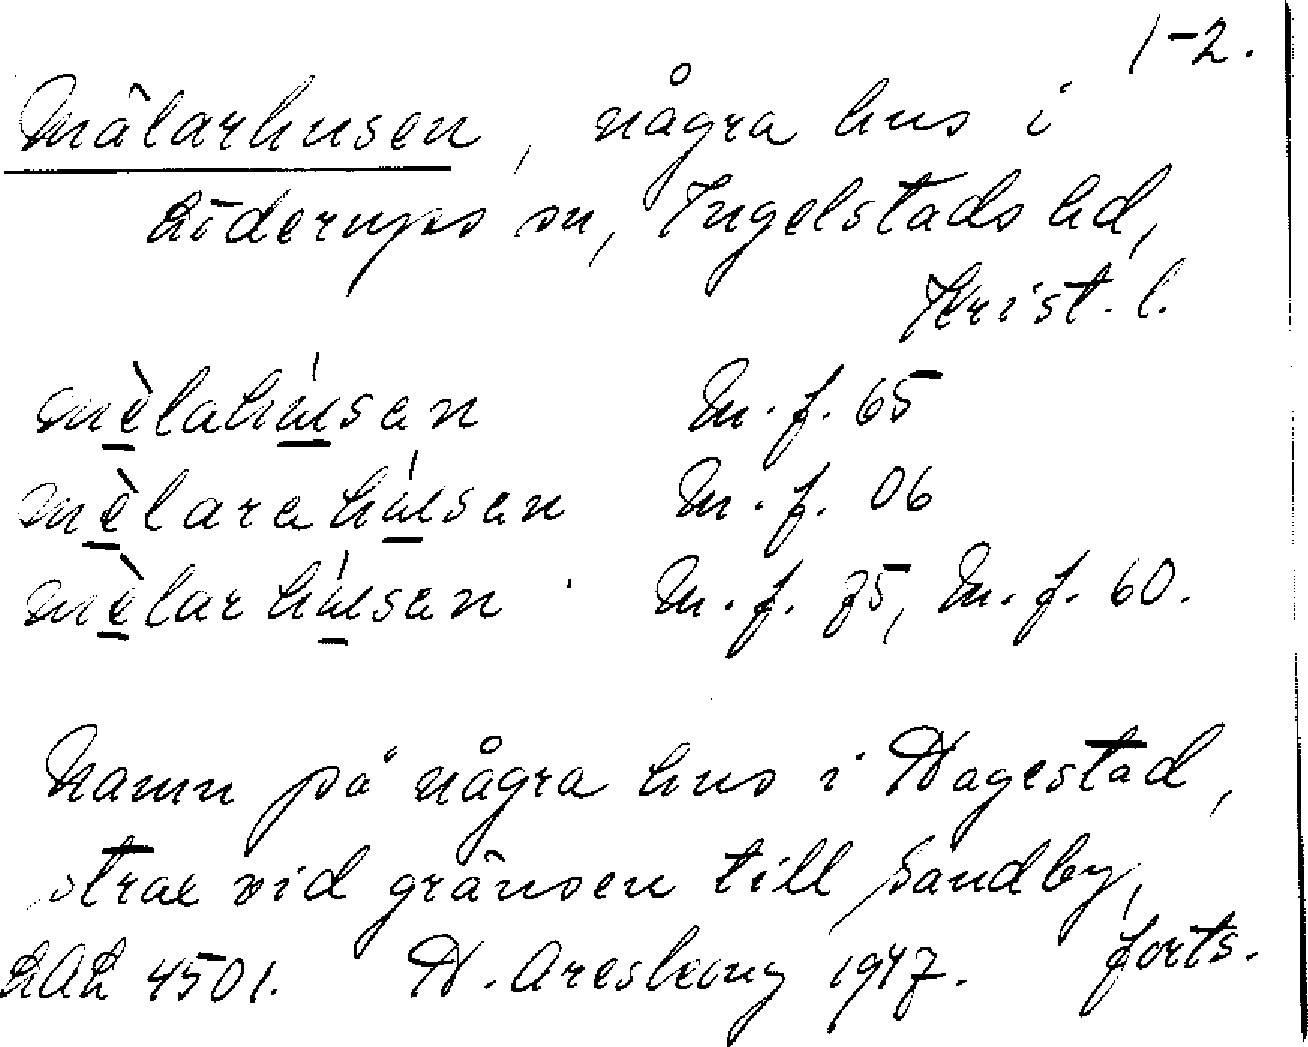 1-2.
Mälarhusen, några hus i
Löderups sn, Ingelstads hd,
Krist. l.
mèlahúsan M. f. 65
mèlarahúsan M. f. 06
mèlarhúsan M. f. 75, M. f. 60.
Namn på några hus i Hagestad,
strax vid gränsen till Sandby,
forts.
LAL 4501. H. Areskoug 1947.